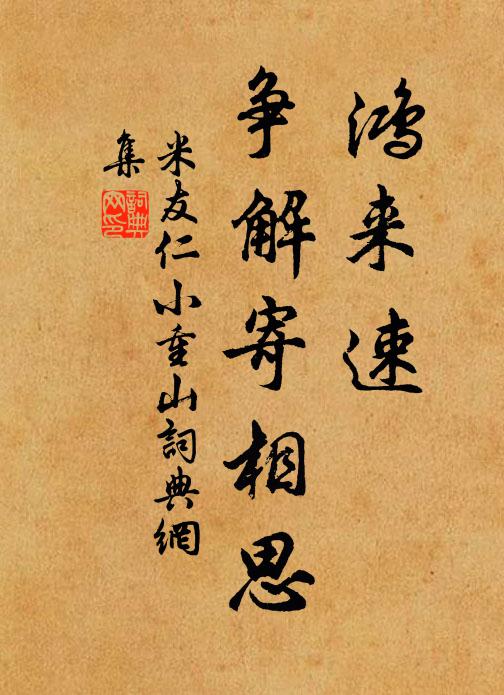 鸿来速
争解寄相思
米友仁小重山詞典網
集
詞典
网印